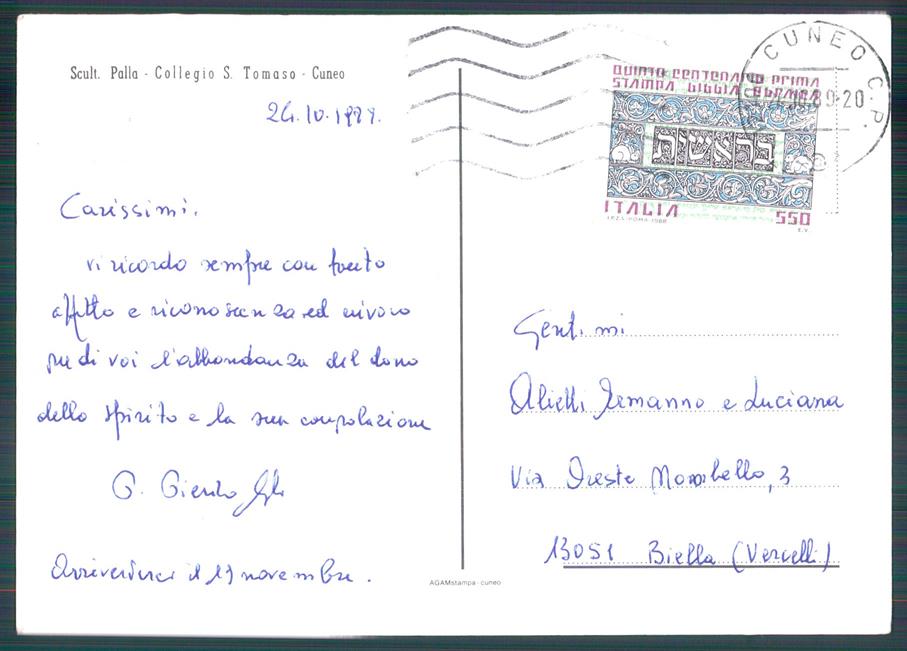 Scult. Palla - Collegio S. Tomaso - Cuneo
Carissimi.
vi ricordo sempre con tanto
affetto e riconoscenza ed invoco
su di voi l'abbondanza del dono
dello Spirito e la sua consolazione
G.
Arrivederci il 19 novembre.
CUNEO C.P.
89-20
QUINTO CENTENARIO PRIMA
STAMPA BIBBIA EBRAICA
בראשית
ITALIA 550
I.P.Z.S. ROMA 1988
E.V.
Gent.mi
Alietti Ermanno e Luciana
Via Oreste Morabello, 3
13051 Biella (Vercelli)
AGAMstampa - cuneo